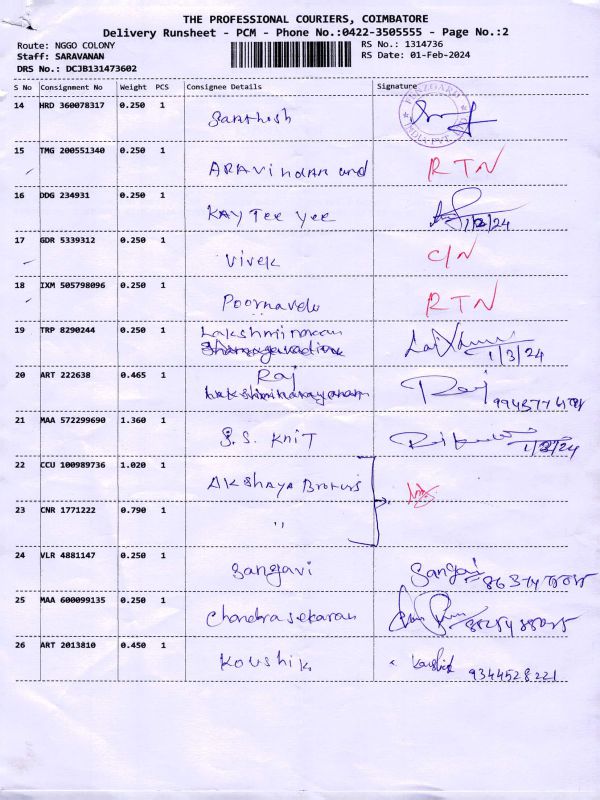 THE PROFESSIONAL COURIERS, COIMBATORE
Delivery Runsheet - PCM - Phone No.:0422-3505555 - Page No.:2
Route: NGGO COLONY
RS No.: 1314736
Staff: SARAVANAN
RS Date: 01-Feb-2024
DRS No.: DCJB131473602
S No Consignment No Weight PCS Consignee Details Signature
14 HRD 360078317 0.250 1 Santhosh
15 TMG 200551340 0.250 1 ARAVindHAN and RTN
16 DDG 234931 0.250 1 KAY Tee yee 1/2/24
17 GDR 5339312 0.250 1 Vivek C/N
18 IXM 505798096 0.250 1 Poornavelu RTN
19 TRP 8290244 0.250 1 Lakshmi 1/3/24
20 ART 222638 0.465 1 Raj Raj
Lakshminarayanan
21 MAA 572299690 1.360 1 S.S. KNIT 1/2/24
22 CCU 100989736 1.020 1 AKshaya Brokers
23 CNR 1771222 0.790 1 "
24 VLR 4881147 0.250 1 Sangavi
25 MAA 600099135 0.250 1 Chandrasekaran
26 ART 2013810 0.450 1 Koushik Koushik 9344528221